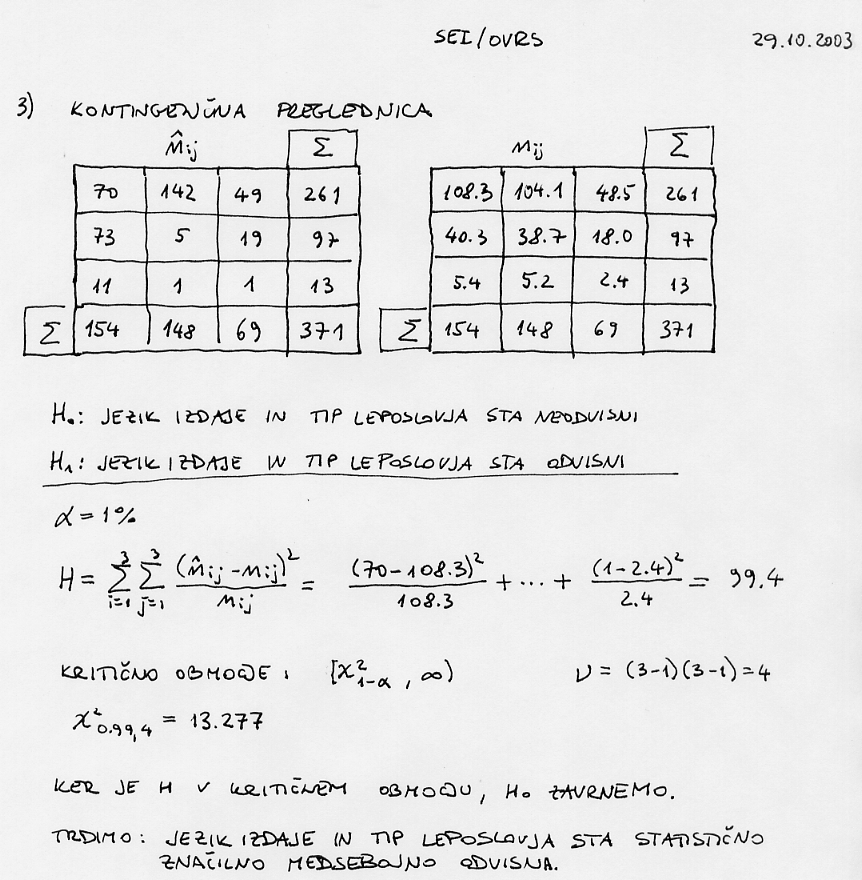 SEI/OVRS 29.10.2003
3) KONTINGENČNA PREGLEDNICA
m̂ij Σ mij Σ
70 142 49 261 108.3 104.1 48.5 261
73 5 19 97 40.3 38.7 18.0 97
11 1 1 13 5.4 5.2 2.4 13
Σ 154 148 69 371 Σ 154 148 69 371
H₀: JEZIK IZDAJE IN TIP LEPOSLOVJA STA NEODVISNI
H₁: JEZIK IZDAJE IN TIP LEPOSLOVJA STA ODVISNI
α = 1%
H = Σ_{i=1}^{3} Σ_{j=1}^{3} (m̂ij - mij)² / mij = (70-108.3)² / 108.3 + ... + (1-2.4)² / 2.4 = 99.4
KRITIČNO OBMOČJE: [χ²_{1-α}, ∞) ν = (3-1)(3-1) = 4
χ²_{0.99,4} = 13.277
KER JE H V KRITIČNEM OBMOČJU, H₀ ZAVRNEMO.
TRDIMO: JEZIK IZDAJE IN TIP LEPOSLOVJA STA STATISTIČNO
ZNAČILNO MEDSEBOJNO ODVISNA.